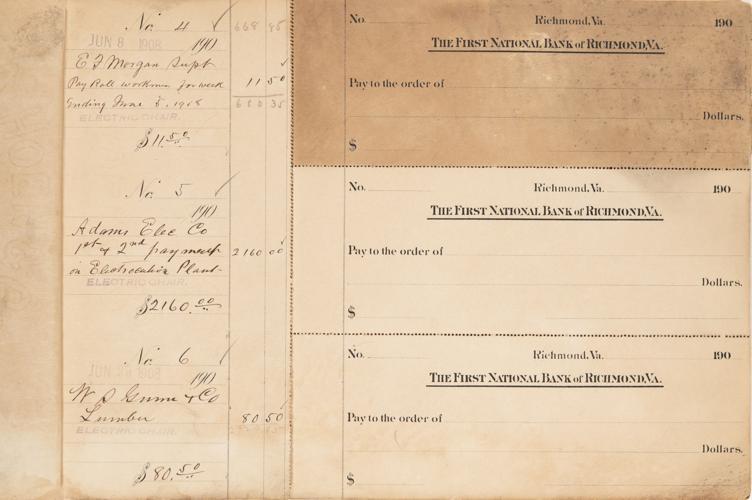 No 4
668 85
JUN 8 1908
190
E F Morgan Supt
Pay Roll workmen for week
11 50
Ending June 5, 1908
680 35
ELECTRIC CHAIR.
$11.50
No 5
190
Adams Elec Co
1st & 2nd payment
2160 00
on Electrocution Plant
ELECTRIC CHAIR.
$2160.00
No 6
JUN 1908
190
& Co
Lumber
80 50
ELECTRIC CHAIR.
$80.50
No. Richmond, Va. 190
THE FIRST NATIONAL BANK of RICHMOND, VA.
Pay to the order of
Dollars.
$
No. Richmond, Va. 190
THE FIRST NATIONAL BANK of RICHMOND, VA.
Pay to the order of
Dollars.
$
No. Richmond, Va. 190
THE FIRST NATIONAL BANK of RICHMOND, VA.
Pay to the order of
Dollars.
$